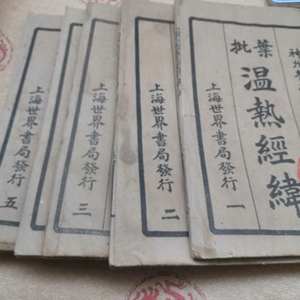 葉批
温熱經緯
上海世界書局發行 一
上海世界書局發行 二
上海世界書局發行 三
上海世界書局發行 五